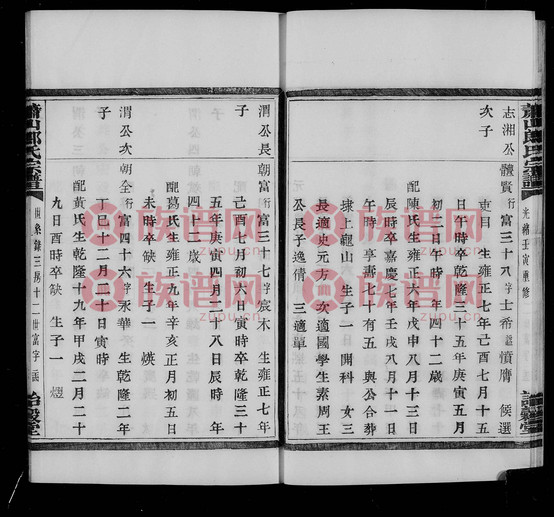 蕭山郎氏宗譜
光緒壬寅重修
詒穀堂
志湘公
次子
體賢行富三十八字士希 㑹膺 候選
吏目 生雍正七年己酉七月十五
日午時卒乾隆十五年庚寅五月
初二日時 年四十二歲
配陳氏生雍正六年戊申八月十三日
辰時卒嘉慶七年壬戌八月十一日
午時 享壽七十有五 與公合葬
埭上觀山 生子一 開科 女三
長適史元方 次適國學生素周王
公長子逸倩 三適單
渭公長
子
朝富行富三十七字宸木 生雍正七年
己酉七月初六日寅時卒乾隆三十
五年庚寅四月二十八日辰時 年
四十二歲
配葛氏生雍正九年辛亥正月初五日
未時卒缺 生子一 煐
渭公次
子
朝全行富四十六字永華 生乾隆二年
丁巳十二月二十日寅時
配黃氏生乾隆十九年甲戌二月二十
九日酉時卒缺 生子一 煙
蕭山郎氏宗譜
世系錄三房十二世富字
詒穀堂
族谱网
zupu.cn